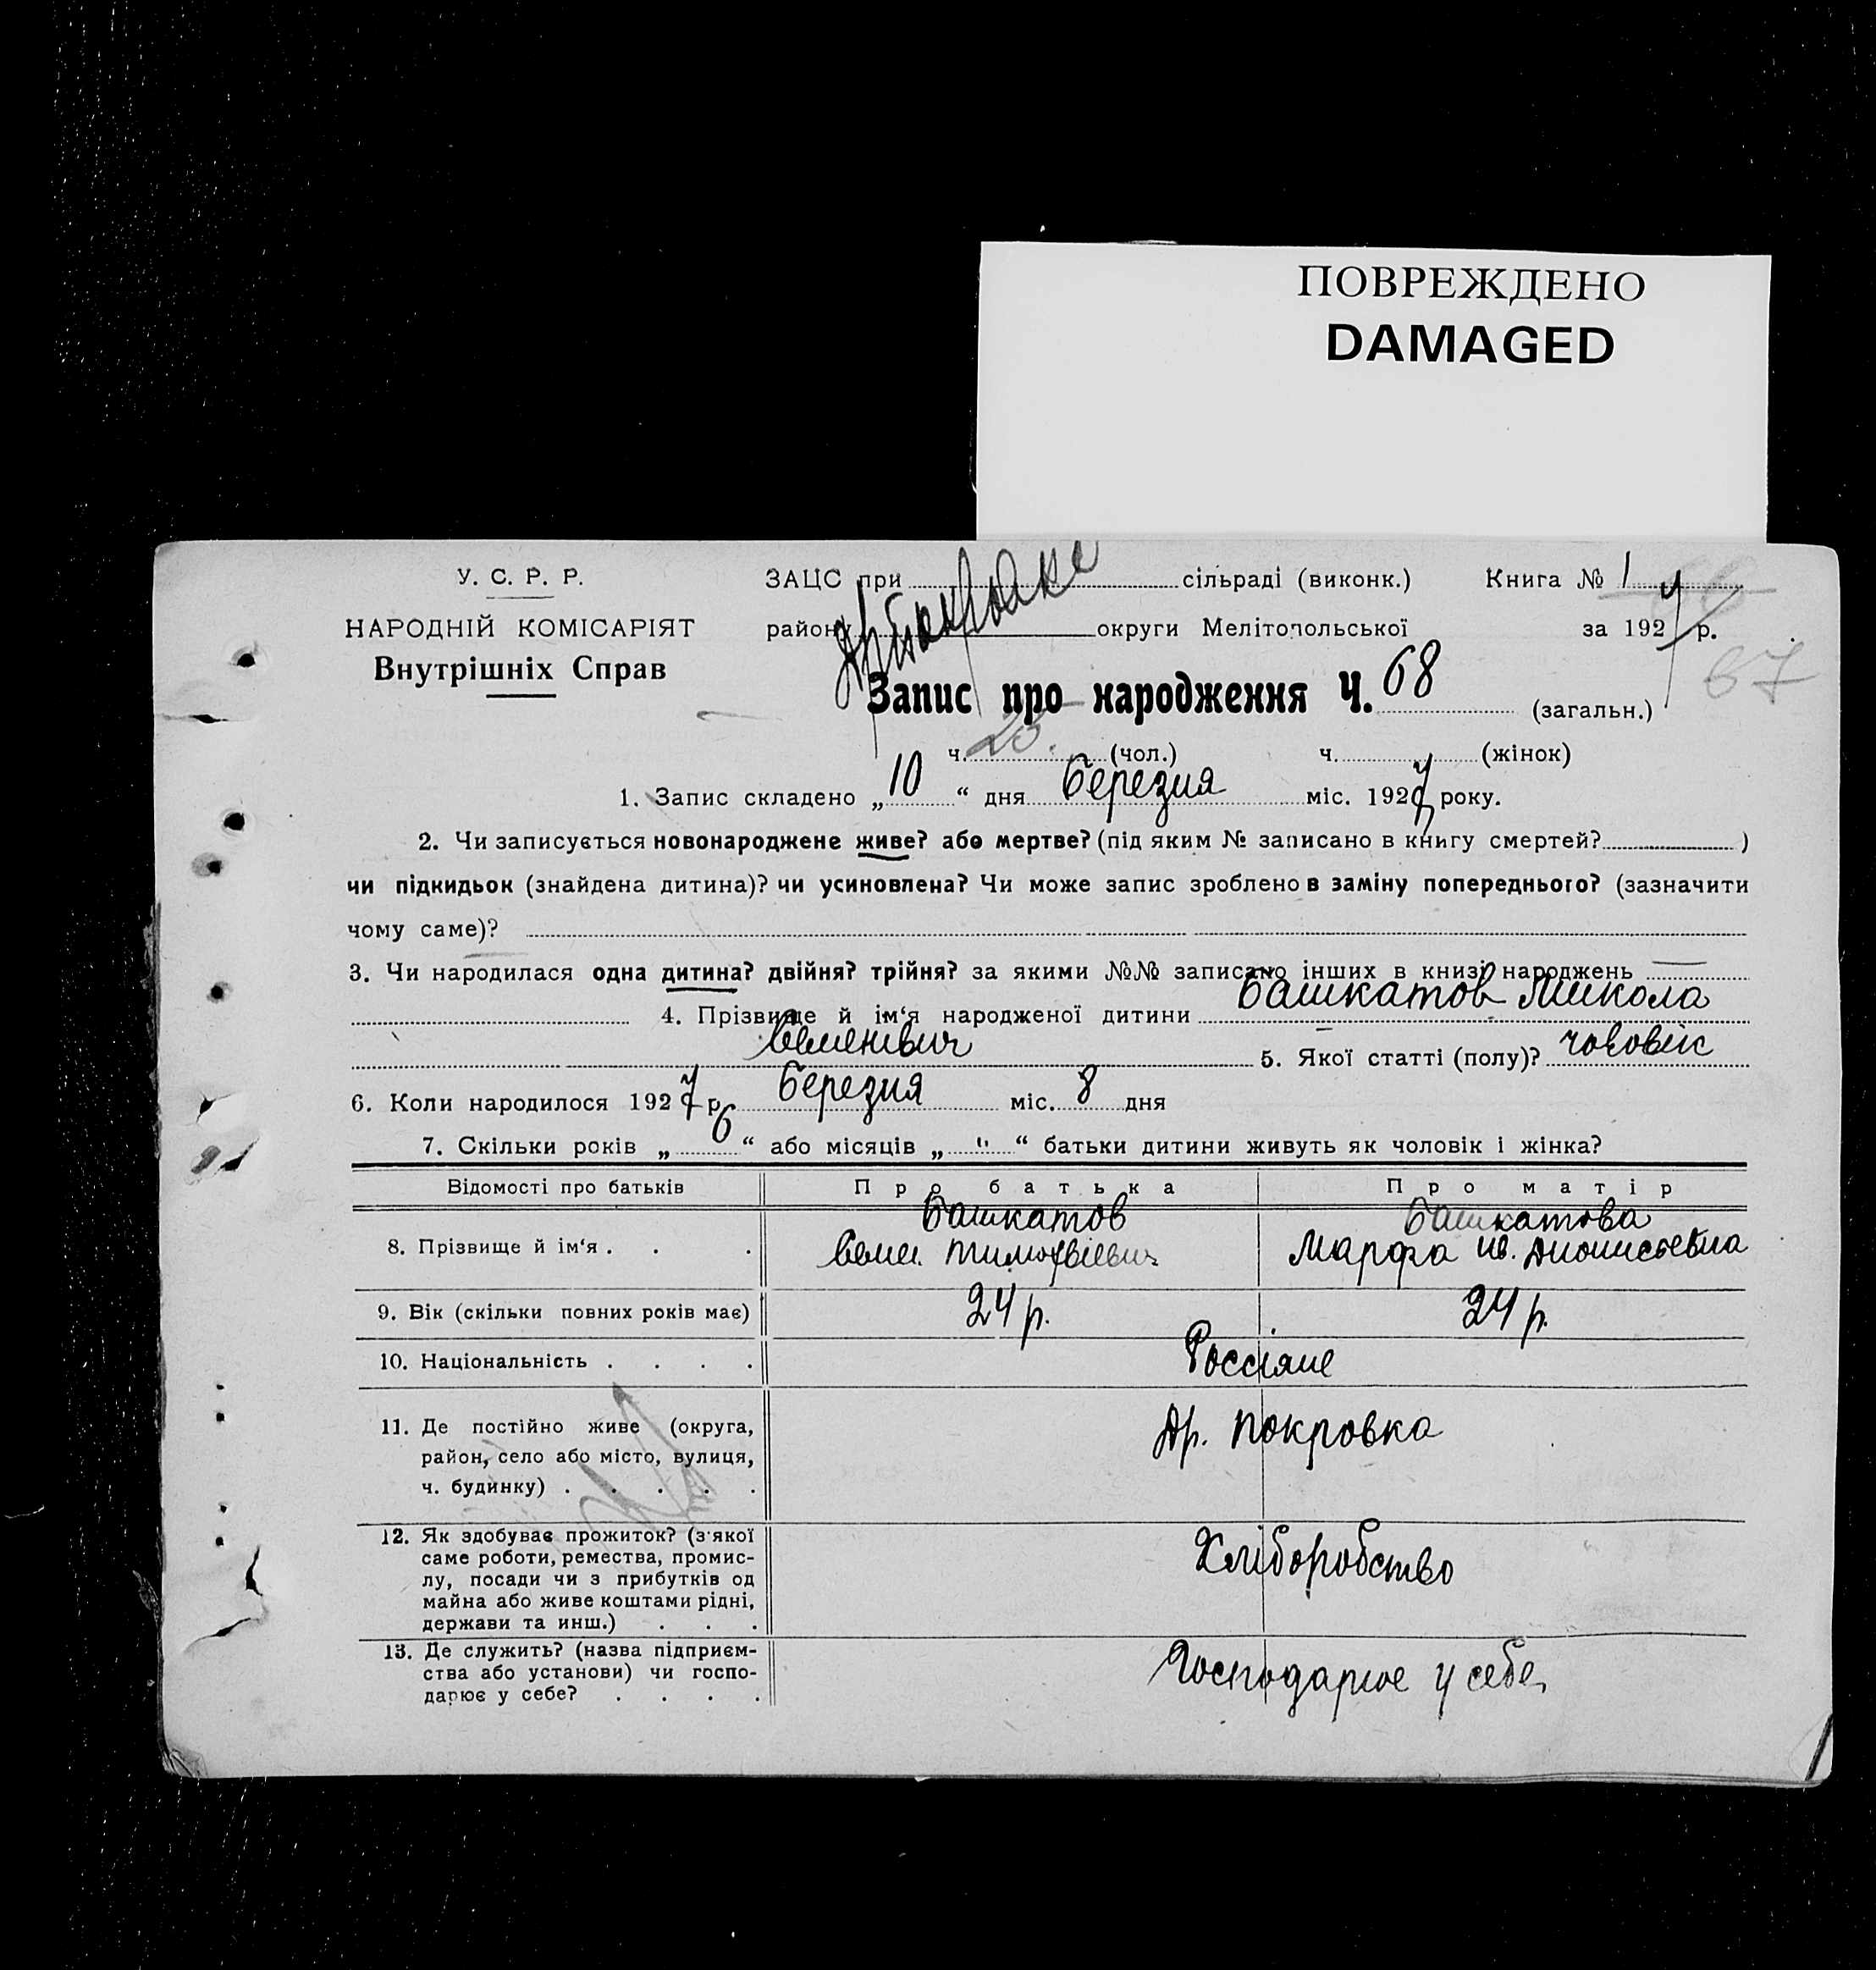 ПОВРЕЖДЕНО
DAMAGED
У. С. Р. Р.
НАРОДНІЙ КОМІСАРІЯТ
Внутрішніх Справ
ЗАЦС при сільраді (виконк.) Книга № 1
району округи Мелітопольської за 1927 р.
67
Запис про народження Ч. 68 (загальн.)
ч. 25. (чол.) ч. (жінок)
1. Запис складено „ 10 “ дня березня міс. 1927 року.
2. Чи записується новонароджене живе? або мертве? (під яким № записано в книгу смертей? )
чи підкидьок (знайдена дитина)? чи усиновлена? Чи може запис зроблено в заміну попереднього? (зазначити
чому саме)?
3. Чи народилася одна дитина? двійня? трійня? за якими №№ записано інших в книзі народжень —
4. Прізвище й ім‘я народженої дитини Башкатов Микола
Семенівич 5. Якої статті (полу)? чоловік
6. Коли народилося 1927 р. березня міс. 8 дня
7. Скільки років „ 6 “ або місяців „ " “ батьки дитини живуть як чоловік і жінка?
Відомості про батьків Про батька Про матір
8. Прізвище й ім‘я . . . Башкатов Башкатова
Семен Тимофвіевич Марфа Дионисьевна
9. Вік (скільки повних років має) 24 р. 24 р.
10. Національність . . . . Россіяне
11. Де постійно живе (округа,
район, село або місто, вулиця,
ч. будинку) . . . . .
Др. Покровка
12. Як здобуває прожиток? (з якої
саме роботи, ремества, промис-
лу, посади чи з прибутків од
майна або живе коштами рідні,
держави та инш.) . . .
Хліборобство
13. Де служить? (назва підприєм-
ства або установи) чи госпо-
дарює у себе? . . . .
Господарює у себе